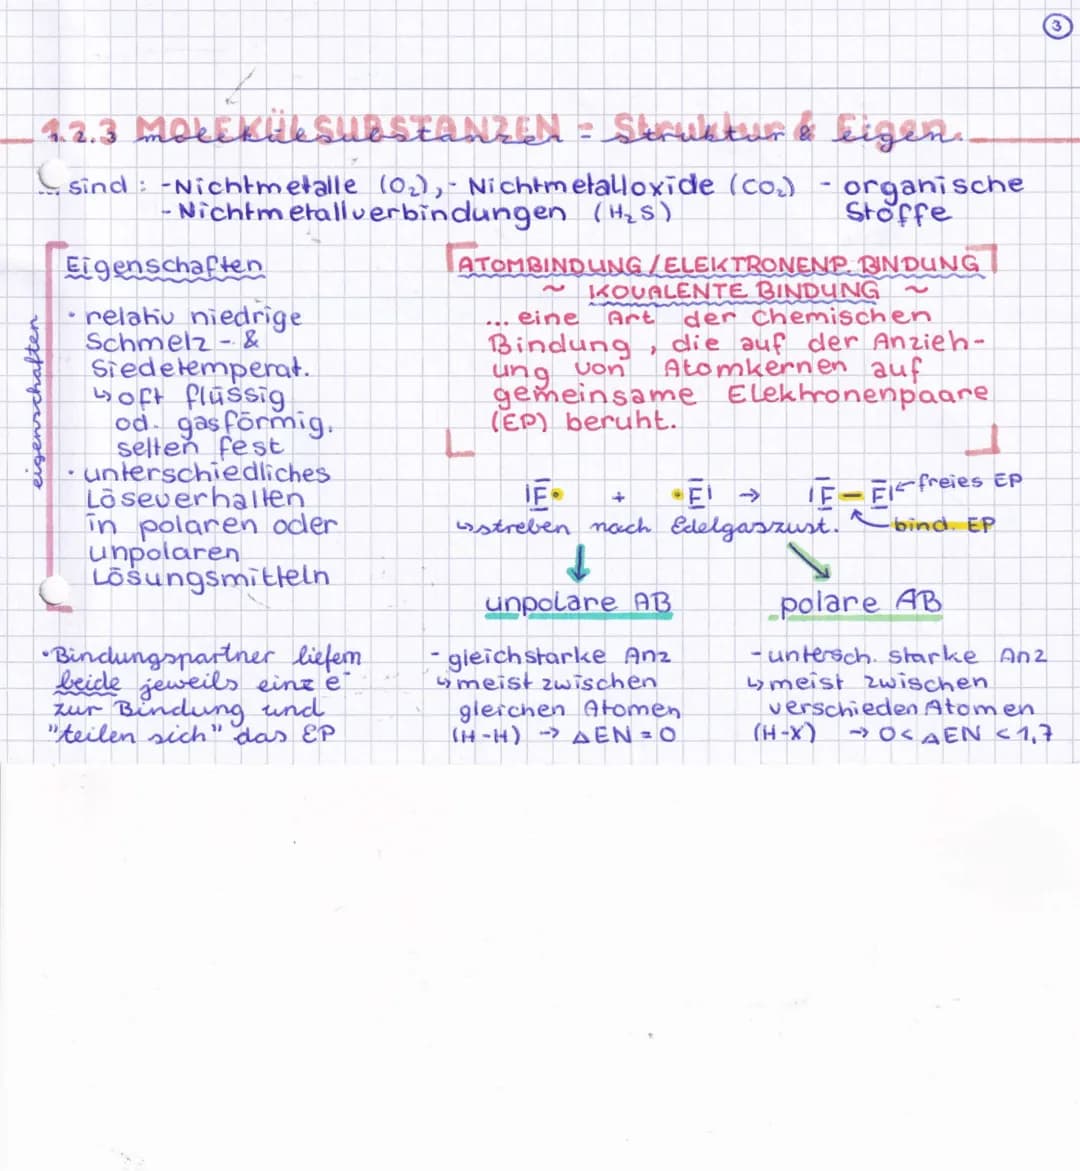 3
1.2.3 MOLEKÜLSUBSTANZEN - Struktur & Eigen.
... sind : - Nichtmetalle (O₂), - Nichtmetalloxide (CO₂) - organische Stoffe
- Nichtmetallverbindungen (H₂S)
eigenschaften
Eigenschaften
• relativ niedrige
Schmelz - &
Siedetemperat.
↳ oft flüssig
od. gasförmig.
selten fest
• unterschiedliches
Löseverhalten
in polaren oder
unpolaren
Lösungsmitteln
• Bindungspartner liefern
beide jeweils einz e⁻
zur Bindung und
"teilen sich" das EP
ATOMBINDUNG / ELEKTRONENP. BINDUNG
~ KOVALENTE BINDUNG ~
... eine Art der chemischen
Bindung, die auf der Anzieh-
ung von Atomkernen auf
gemeinsame Elektronenpaare
(EP) beruht.
|E• + •E| → |E–E| ← freies EP
↳ streben nach Edelgaszust. bind. EP
unpolare AB
- gleichstarke Anz
↳ meist zwischen
gleichen Atomen
(H-H) → ΔEN = 0
polare AB
- untersch. starke Anz
↳ meist zwischen
verschieden Atomen
(H-X) → 0 < ΔEN < 1,7